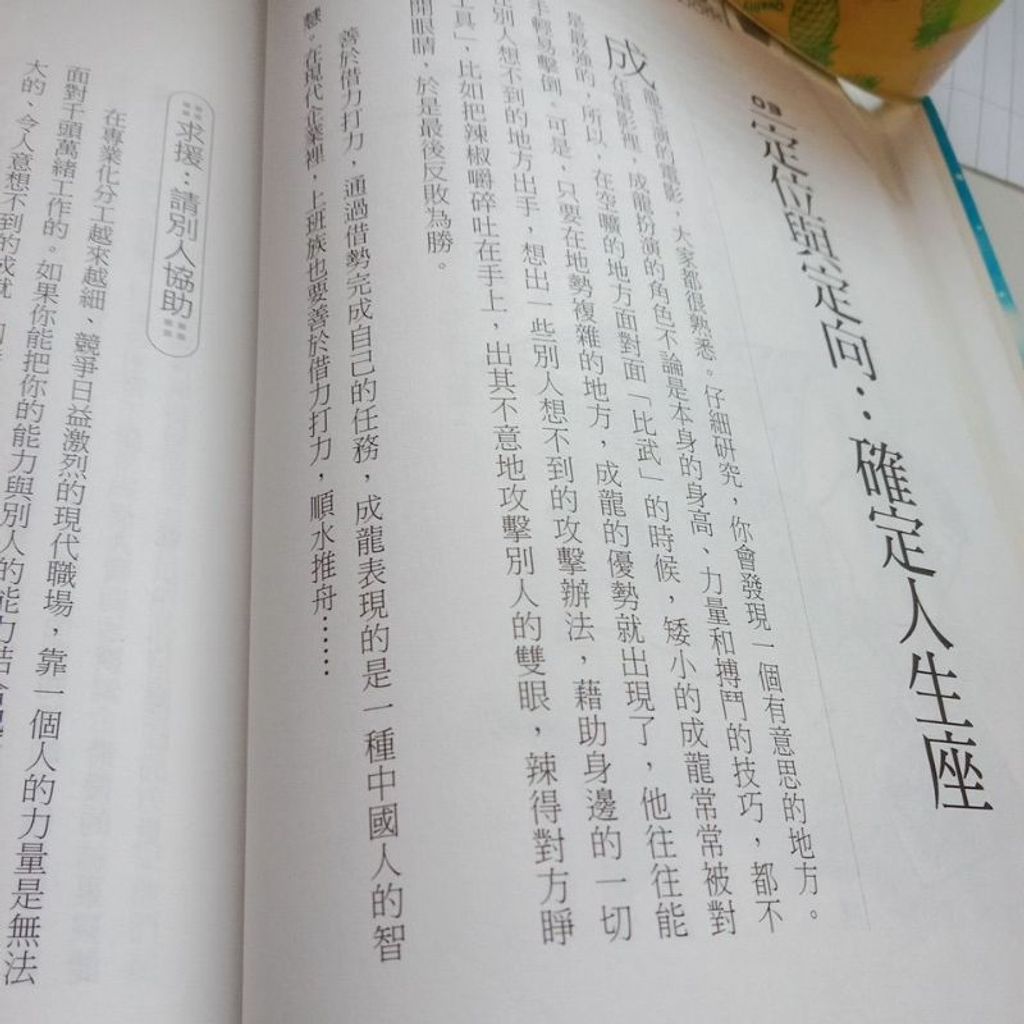 03 定位與定向：確定人生座
成龍主演的電影，大家都很熟悉。仔細研究，你會發現一個有意思的地方。
在電影裡，成龍扮演的角色不論是本身的身高、力量和搏鬥的技巧，都不
是最強的，所以，在空曠的地方面對面「比武」的時候，矮小的成龍常常被對
手輕易擊倒。可是，只要在地勢複雜的地方，成龍的優勢就出現了，他往往能
在別人想不到的地方出手，想出一些別人想不到的攻擊辦法，藉助身邊的一切
工具」，比如把辣椒嚼碎吐在手上，出其不意地攻擊別人的雙眼，辣得對方睜
開眼睛，於是最後反敗為勝。
善於借力打力，通過借勢完成自己的任務，成龍表現的是一種中國人的智
慧。在現代企業裡，上班族也要善於借力打力，順水推舟……
求援：請別人協助
在專業化分工越來越細、競爭日益激烈的現代職場，靠一個人的力量是無法
面對千頭萬緒工作的。如果你能把你的能力與別人的能力結合
大的、令人意想不到的成就